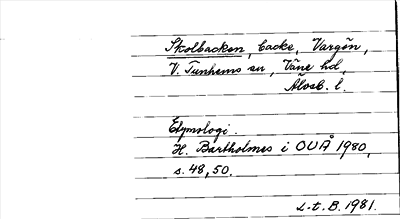 Skolbacken, backe, Vargön,
V. Tunhems sn, Väne hd,
Älvsb. l.
Etymologi.
H. Bartholmes i OUÅ 1980,
s. 48, 50.
L-t. B. 1981.